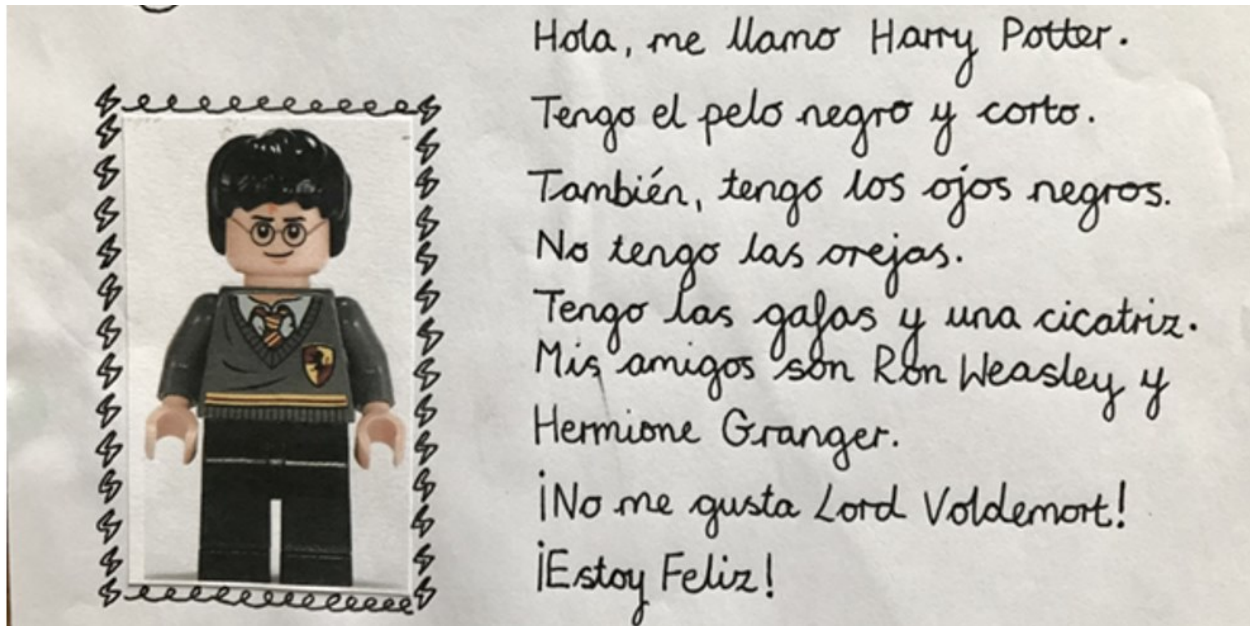 Hola, me llamo Harry Potter.
Tengo el pelo negro y corto.
También, tengo los ojos negros.
No tengo las orejas.
Tengo las gafas y una cicatriz.
Mis amigos son Ron Weasley y
Hermione Granger.
¡No me gusta Lord Voldemort!
¡Estoy Feliz!